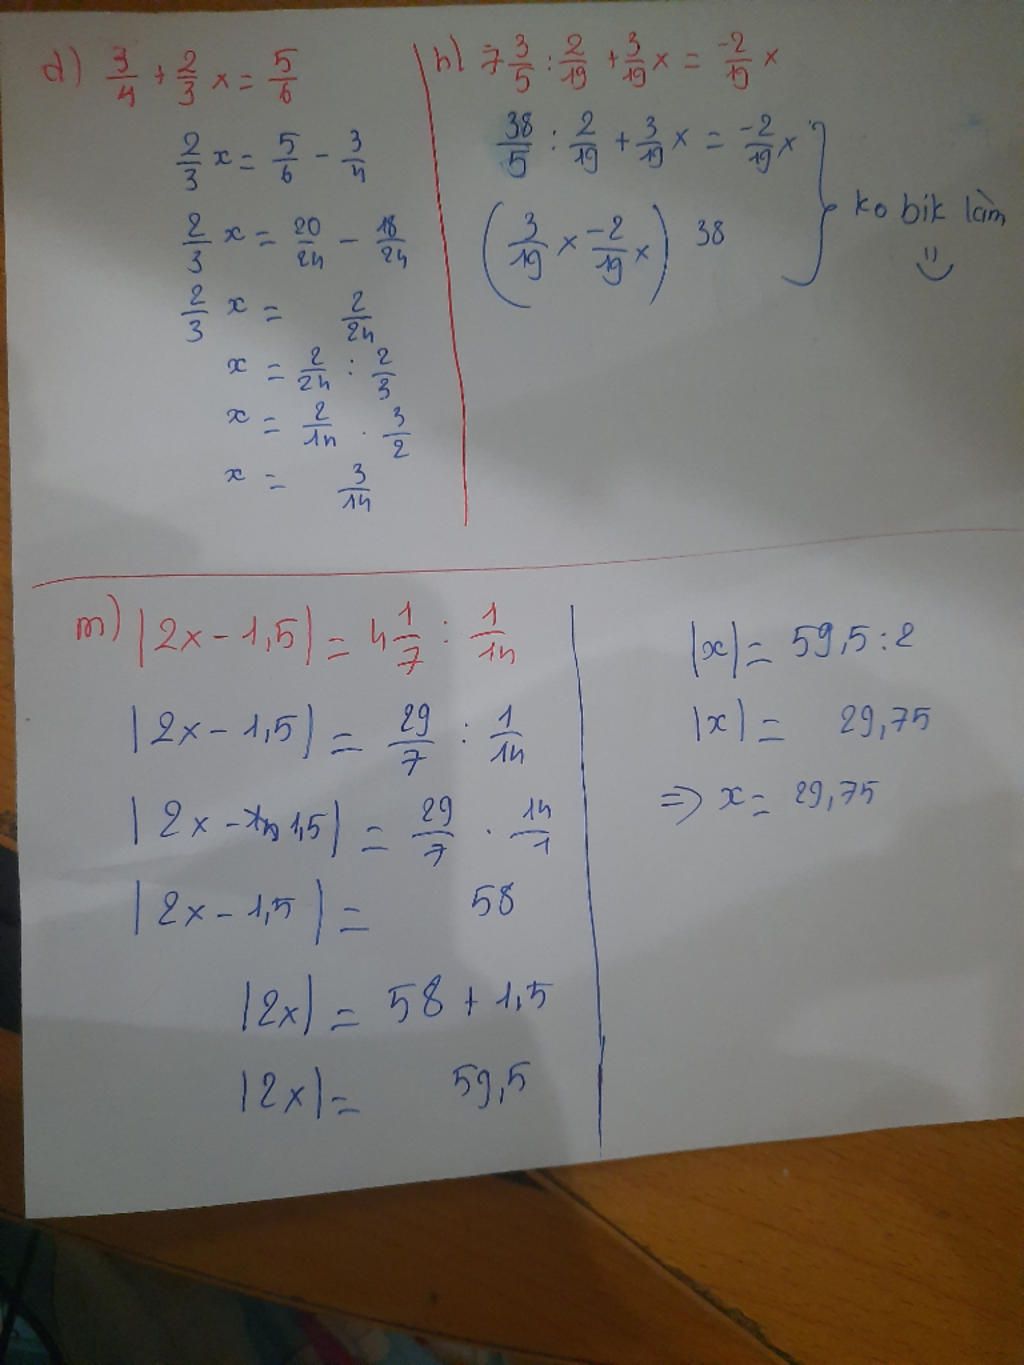 d) 3/4 + 2/3 x = 5/6
2/3 x = 5/6 - 3/4
2/3 x = 20/24 - 18/24
2/3 x = 2/24
x = 2/24 : 2/3
x = 2/14 . 3/2
x = 3/14
h) 7 3/5 : 2/19 + 3/19 x = -2/19 x
38/5 : 2/19 + 3/19 x = -2/19 x
(3/19 x -2/19 x) 38
ko bik làm
m) |2x - 1,5| = 4 1/7 : 1/14
|2x - 1,5| = 29/7 : 1/14
|2x - 1,5| = 29/7 . 14/1
|2x - 1,5| = 58
|2x| = 58 + 1,5
|2x| = 59,5
|x| = 59,5 : 2
|x| = 29,75
=> x = 29,75